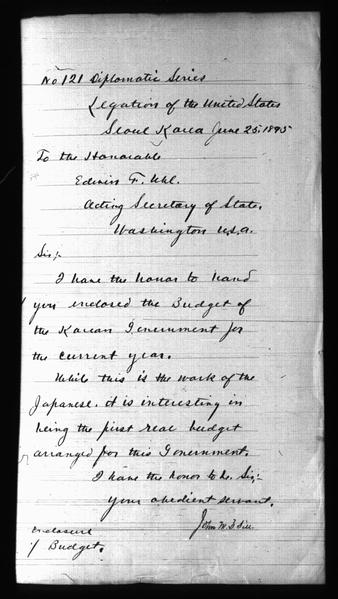 No 121 Diplomatic Series
Legation of the United States
Seoul Korea June 25, 1895
To the Honorable
Edwin F. Uhl.
Acting Secretary of State.
Washington U.S.A.
Sir:-
I have the honor to hand
you enclosed the Budget of
the Korean Government for
the current year.
While this is the work of the
Japanese. it is interesting in
being the first real budget
arranged for this Government.
I have the honor to be, Sir:-
your obedient servant.
John M. B. Sill.
enclosure
1/ Budget.